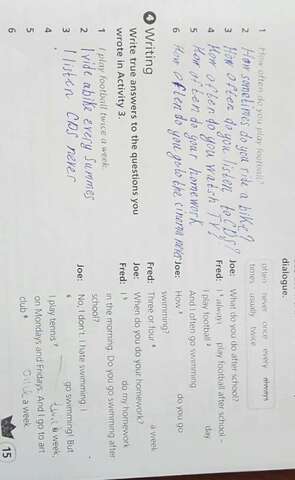 1 How often do you play football?
2 How somtimes do you ride a bike?
3 How often do you listen to CDs?
4 How often do you watch TV?
5 How often do your homework
6 How often do you go to the cinema never
4 Writing
Write true answers to the questions you
wrote in Activity 3.
1 I play football twice a week.
2 I ride a bike every summer
3 I listen CDs never
4
5
6
dialogue.
often never once every always
times usually twice
Joe: What do you do after school?
Fred: I ¹always play football after school –
I play football ² day.
And I often go swimming.
Joe: How ³ do you go
swimming?
Fred: Three or four ⁴ a week.
Joe: When do you do your homework?
Fred: I ⁵ do my homework
in the morning. Do you go swimming after
school?
Joe: No, I don't. I hate swimming! I
⁶ go swimming! But
I play tennis ⁷ twice a week,
on Mondays and Fridays. And I go to art
club ⁸ once a week.
15